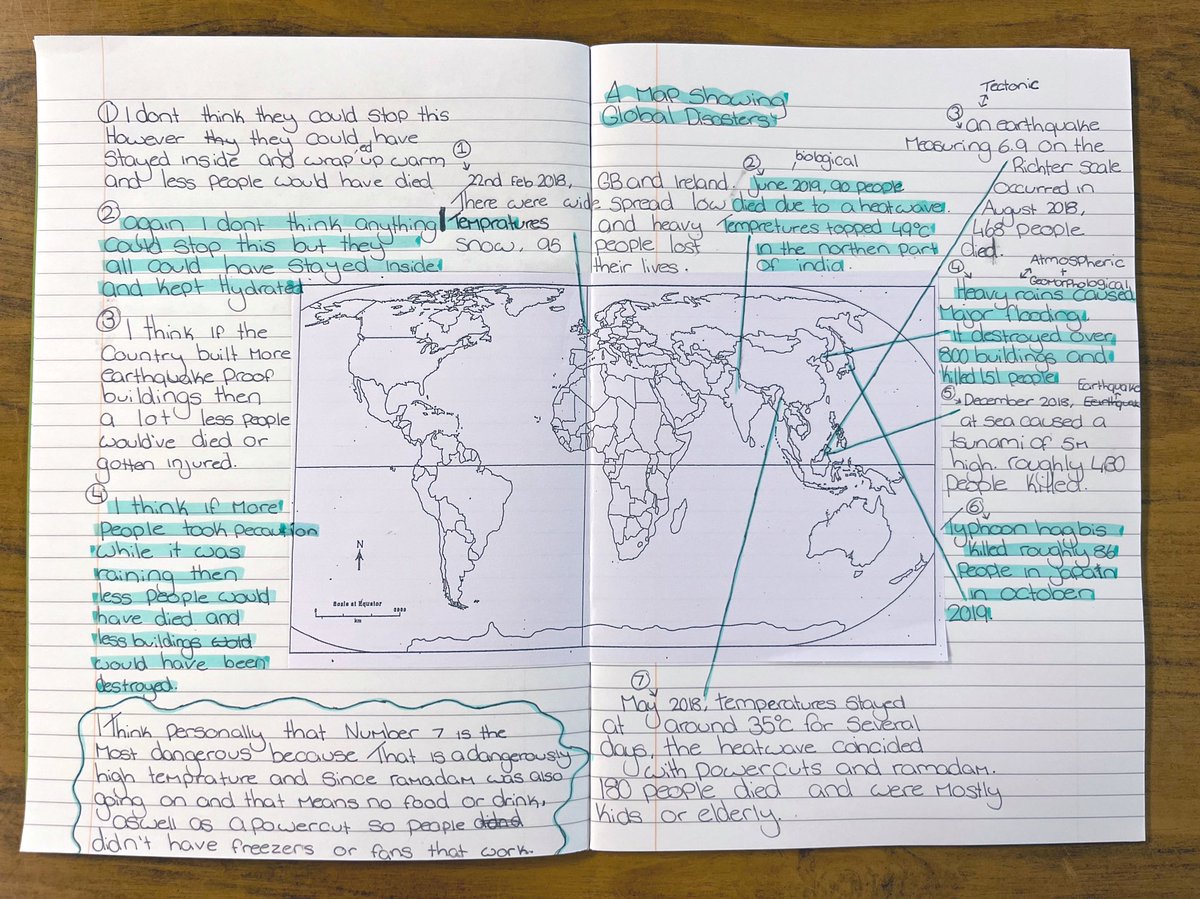 ① I dont think they could stop this
However thy they could have
Stayed inside and wrap'ed up warm
and less people would have died
② again I dont think anything
could stop this but they
all could have stayed inside
and kept Hydrated
③ I think if the
Country built More
earthquake Proof
buildings then
a lot less people
would've died or
gotten injured.
④ I think if More
People took pecaution
while it was
raining then
less people would
have died and
less buildings wold
would have been
destroyed.
I Think Personally that Number 7 is the
Most dangerous because That is a dangerously
high temprature and since ramadam was also
going on and that Means no food or drink,
aswell as a powercut so people didnd
didn't have freezers or fans that work.
A Map showing
Global Disasters
①
22nd Feb 2018, GB and Ireland.
There were wide spread low
Tempratures and heavy
snow, 95 people lost
their lives.
② biological
June 2019, 90 people
died due to a heatwave.
Tempretures topped 49°C
in the northen part
of india.
Tectonic
③ An earthquake
Measuring 6.9 on the
Richter scale
Occurred in
August 2018,
468 people
died.
④ Atmospheric
+
Geomorphological
Heavy rains caused
Major flooding.
it destroyed over
800 buildings and
killed 151 people
Earthquake
⑤ December 2018, Earthquake
at sea caused a
tsunami of 5m
high. roughly 480
People Killed.
⑥
Typhoon hagbis
killed roughly 86
People in Japan
in October
2019.
N
Scale at Equator
km
⑦
May 2018, temperatures stayed
at around 35°C for several
days, the heatwave concided
with Powercuts and ramadam.
180 people died and were Mostly
kids or elderly.